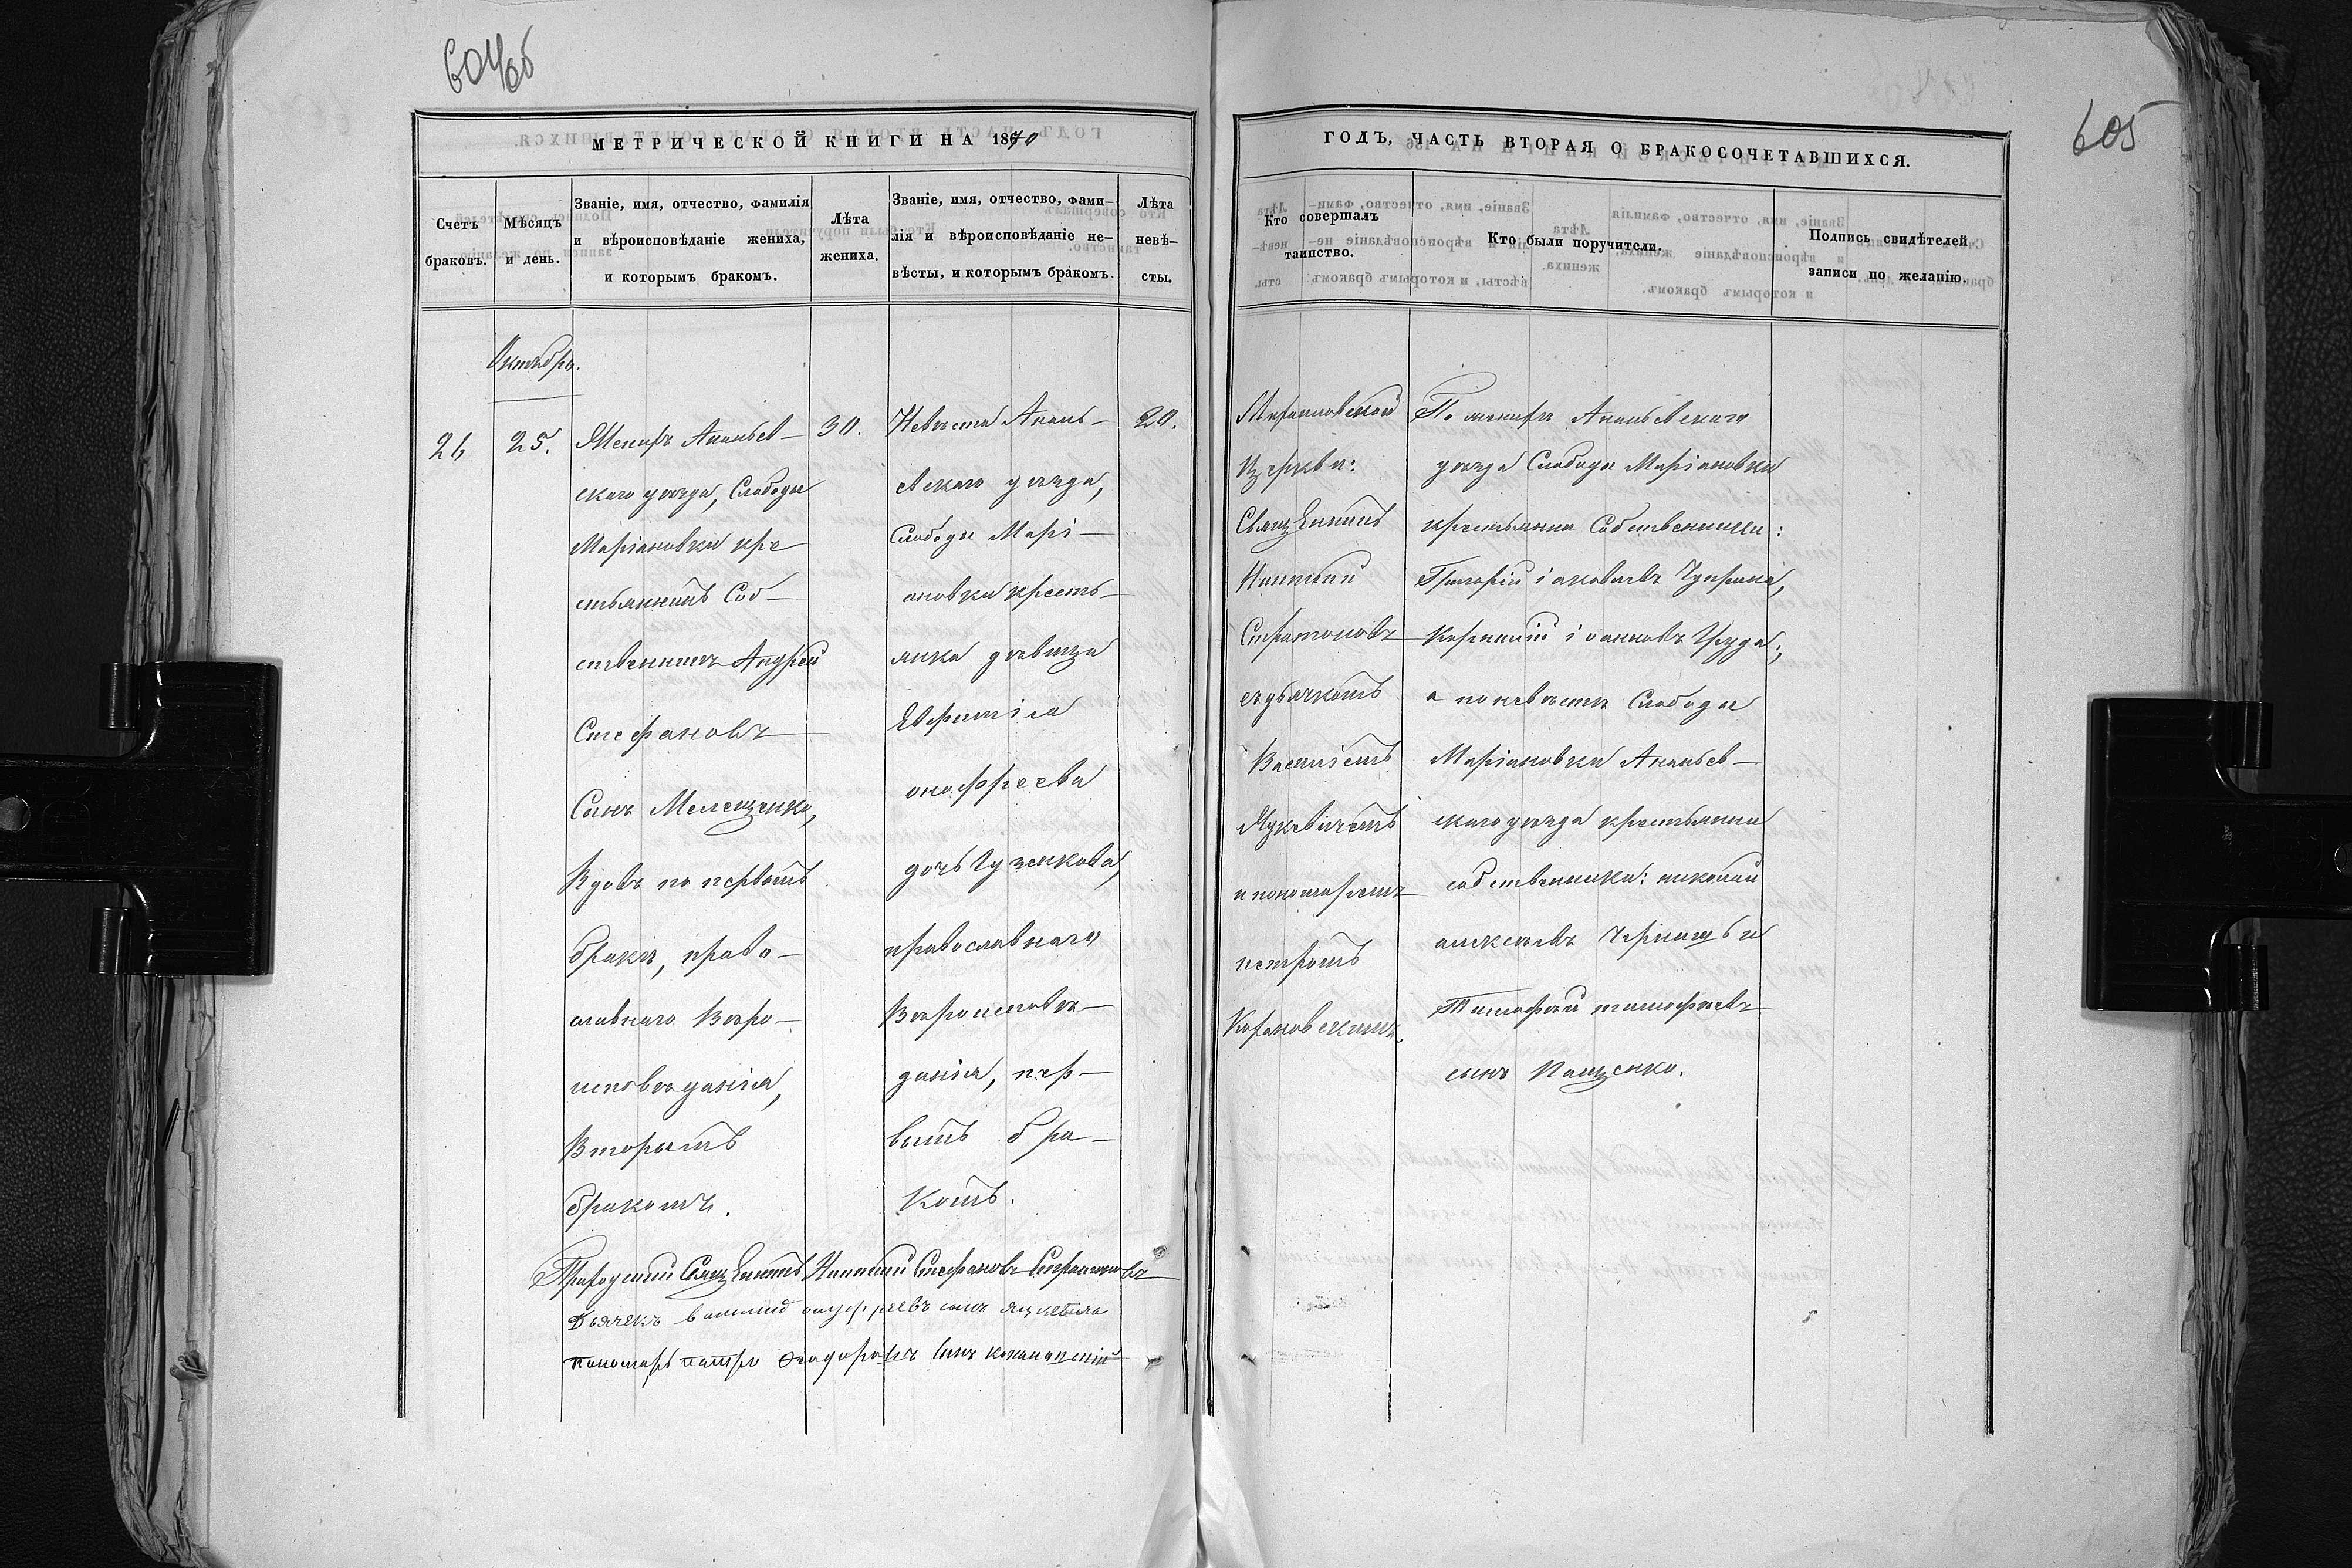 604об
605
МЕТРИЧЕСКОЙ КНИГИ НА 1870
Счетъ браковъ.
Мѣсяцъ и день.
Званіе, имя, отчество, фамилія
и вѣроисповѣданіе жениха,
и которымъ бракомъ.
Лѣта
жениха.
Званіе, имя, отчество, фами-
лія и вѣроисповѣданіе не-
вѣсты, и которымъ бракомъ.
Лѣта
невѣ-
сты.
Октябрь.
21
25.
Женихъ Ананьев-
скаго уѣзда, Слободы
Маріановки кре
стьянинъ Соб-
ственникъ Андрей
Стефановъ
Сынъ Мелещенко,
Вдовъ по первомъ
бракѣ, право-
славнаго Вѣро-
исповѣданія,
Вторымъ
бракомъ.
30.
Невѣста Анань-
евскаго уѣзда,
Слободы Марі-
ановки кресть-
янка дѣвица
Евфимія
онофреева
дочь
православнаго
Вѣроисповѣ-
данія, пер-
вымъ бра-
комъ.
20.
Приходскій Священникъ Стефановъ Стратоновъ
Дьячекъ василий онуфреевъ сынъ
пономарь петръ Феодоровъ сынъ
ГОДЪ, ЧАСТЬ ВТОРАЯ О БРАКОСОЧЕТАВШИХСЯ.
Кто совершалъ
таинство.
Кто были поручители.
Подпись свидѣтелей
записи по желанію.
Маріановской
Церкви:
Священникъ
Стратоновъ
съ дьячкомъ
Василіемъ
Яцкевичемъ
и пономаремъ
петромъ
По женихѣ Ананьевскаго
уѣзда Слободы Маріановки
крестьяне Собственники:
Григорій іаковлевъ Чуприна,
іоанновъ
а по невѣстѣ Слободы
Маріановки Ананьев-
скаго уѣзда крестьяне
собственники: николай
алексѣевъ и
Тимофей тимофѣевъ
сынъ Пащенко.